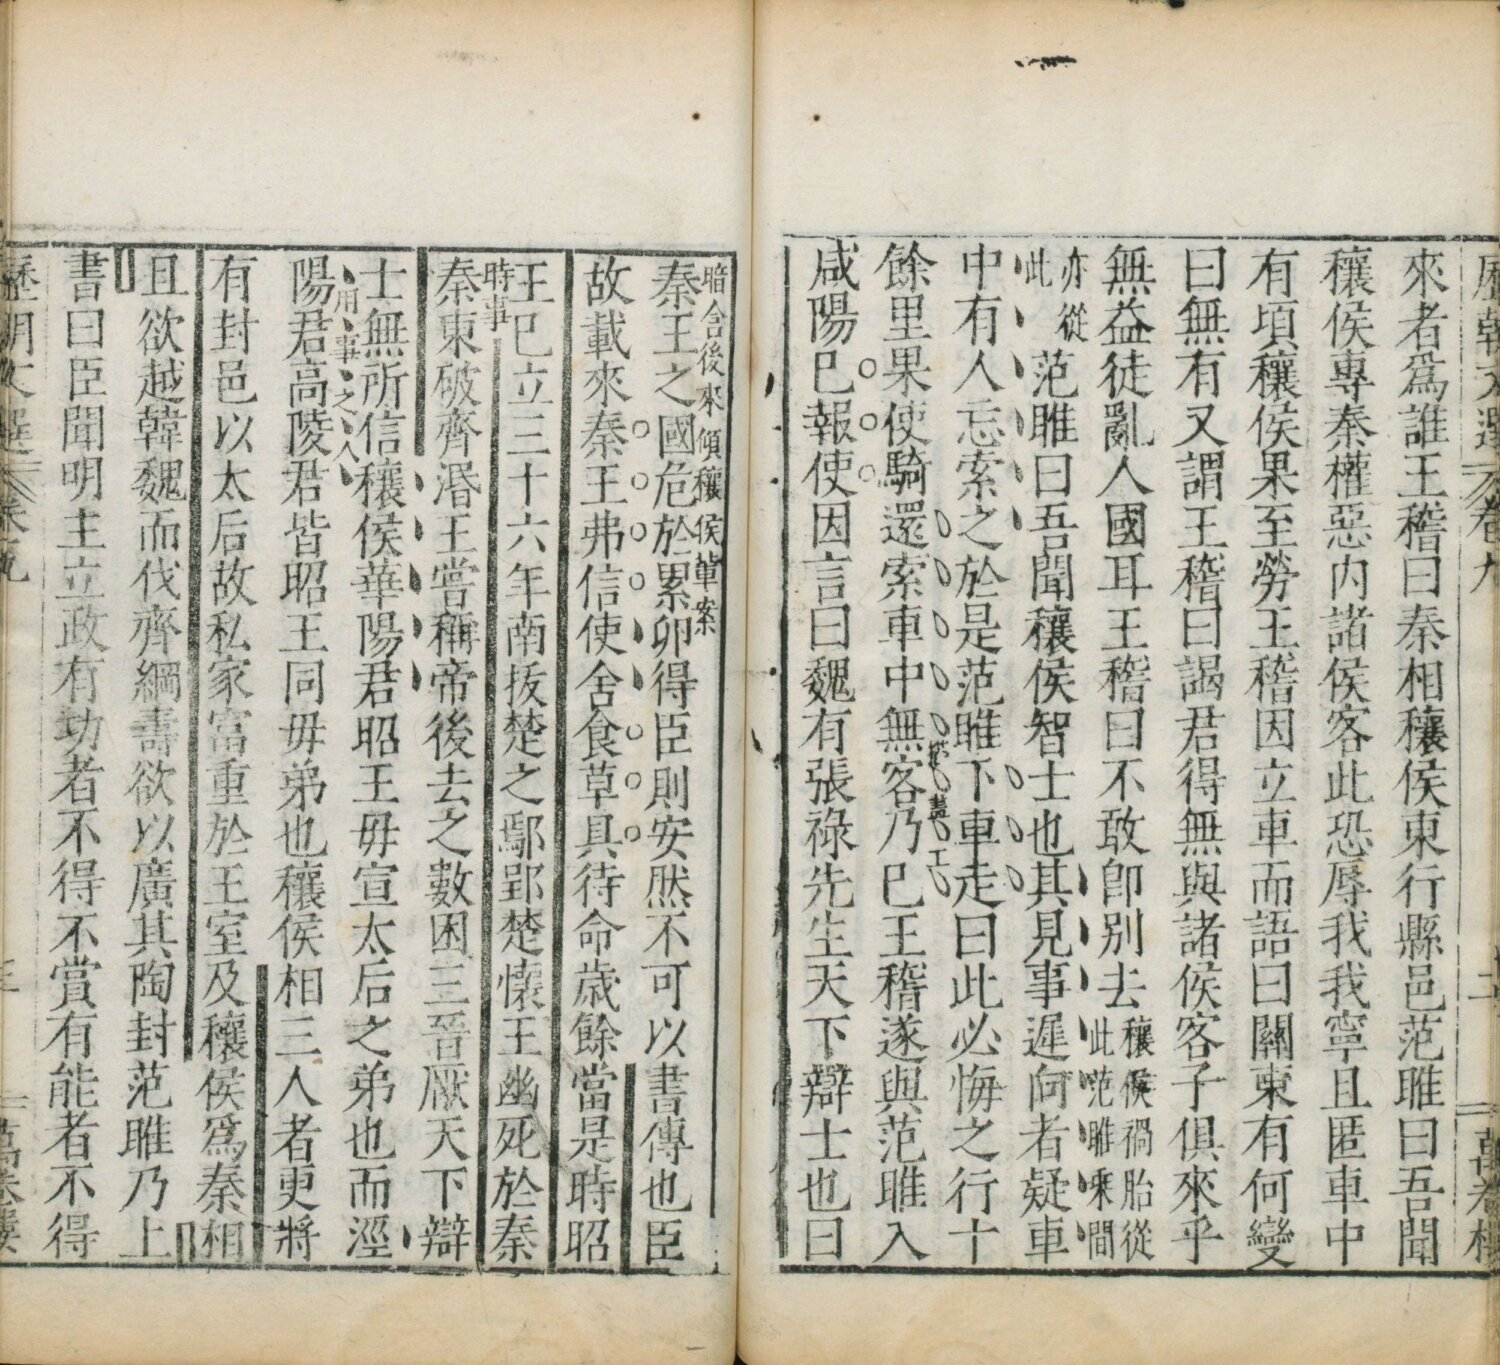 歷朝文選 卷九 二 萬卷樓
來者爲誰王稽曰秦相穰侯東行縣邑范雎曰吾聞
穰侯專秦權惡内諸侯客此恐辱我我寧且匿車中
有頃穰侯果至勞王稽因立車而語曰關東有何變
曰無有又謂王稽曰謁君得無與諸侯客子俱來乎
無益徒亂人國耳王稽曰不敢卽别去
穰侯禍胎從
此范雎乘間
亦從
此
范雎曰吾聞穰侯智士也其見事遲向者疑車
中有人忘索之於是范雎下車走曰此必悔之行十
餘里果使騎還索車中無客乃巳王稽遂與范雎入
咸陽巳報使因言曰魏有張祿先生天下辯士也曰
暗含後來傾穰侯單案
秦王之國危於累卵得臣則安然不可以書傳也臣
故載來秦王弗信使舍食草具待命歲餘當是時昭
王巳立三十六年南拔楚之鄢郢楚懷王幽死於秦
時事
秦東破齊湣王嘗稱帝後去之數困三晉厭天下辯
士無所信穰侯華陽君昭王毋宣太后之弟也而涇
用事之人
陽君高陵君皆昭王同毋弟也穰侯相三人者更將
有封邑以太后故私家富重於王室及穰侯爲秦相
且欲越韓魏而伐齊綱壽欲以廣其陶封范雎乃上
書曰臣聞明主立政有功者不得不賞有能者不得
歷朝文選 卷九 三 萬卷樓